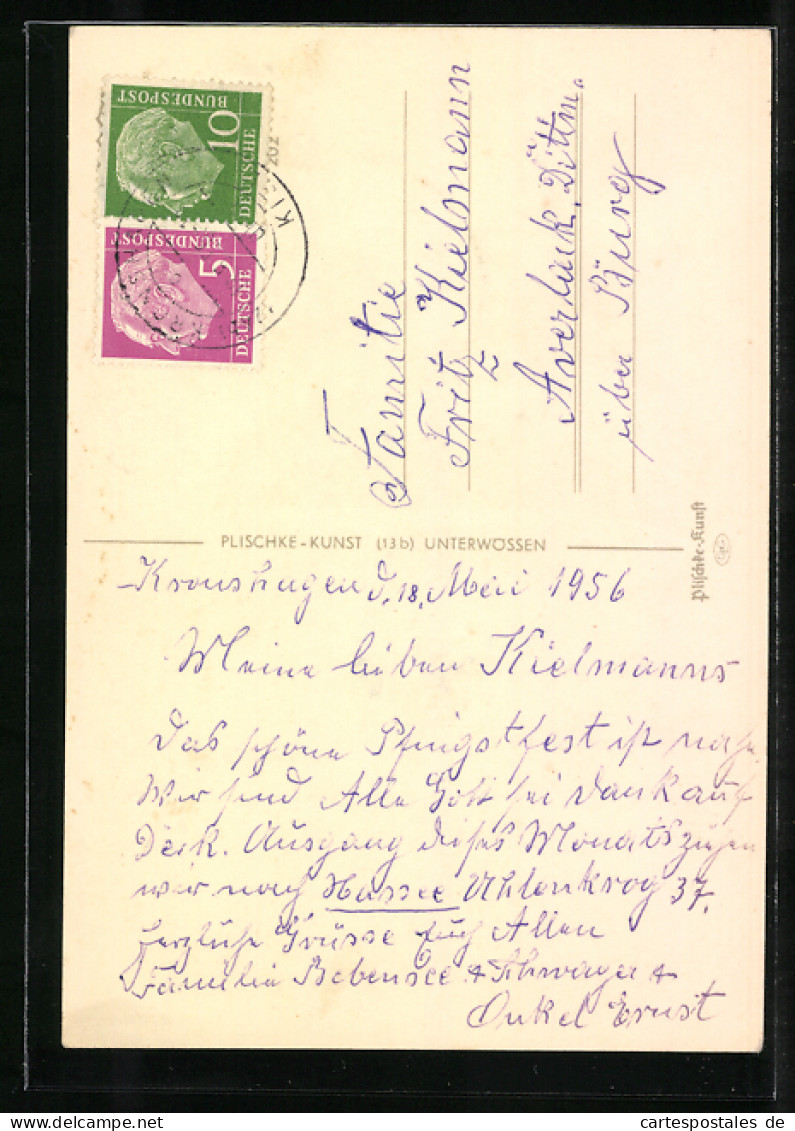 10
DEUTSCHE
BUNDESPOST
5
DEUTSCHE
BUNDESPOST
Familie
Fritz Kielmann
Averlack, Dittm.
über Bürg
PLISCHKE-KUNST (13b) UNTERWÖSSEN
Plischke-Kunst
Kronshagen d. 18. Mai 1956
Meine lieben Kielmanns
Das schöne Pfingstfest ist nahe
Wir sind Alle Gott sei Dank auf
Deck. Ausgang dieses Monats ziehen
wir nach Hassee Uhlenkrog 37.
Herzliche Grüsse Euch Allen
Familie Bebensee + Schwager +
Onkel Ernst
cartespostales de